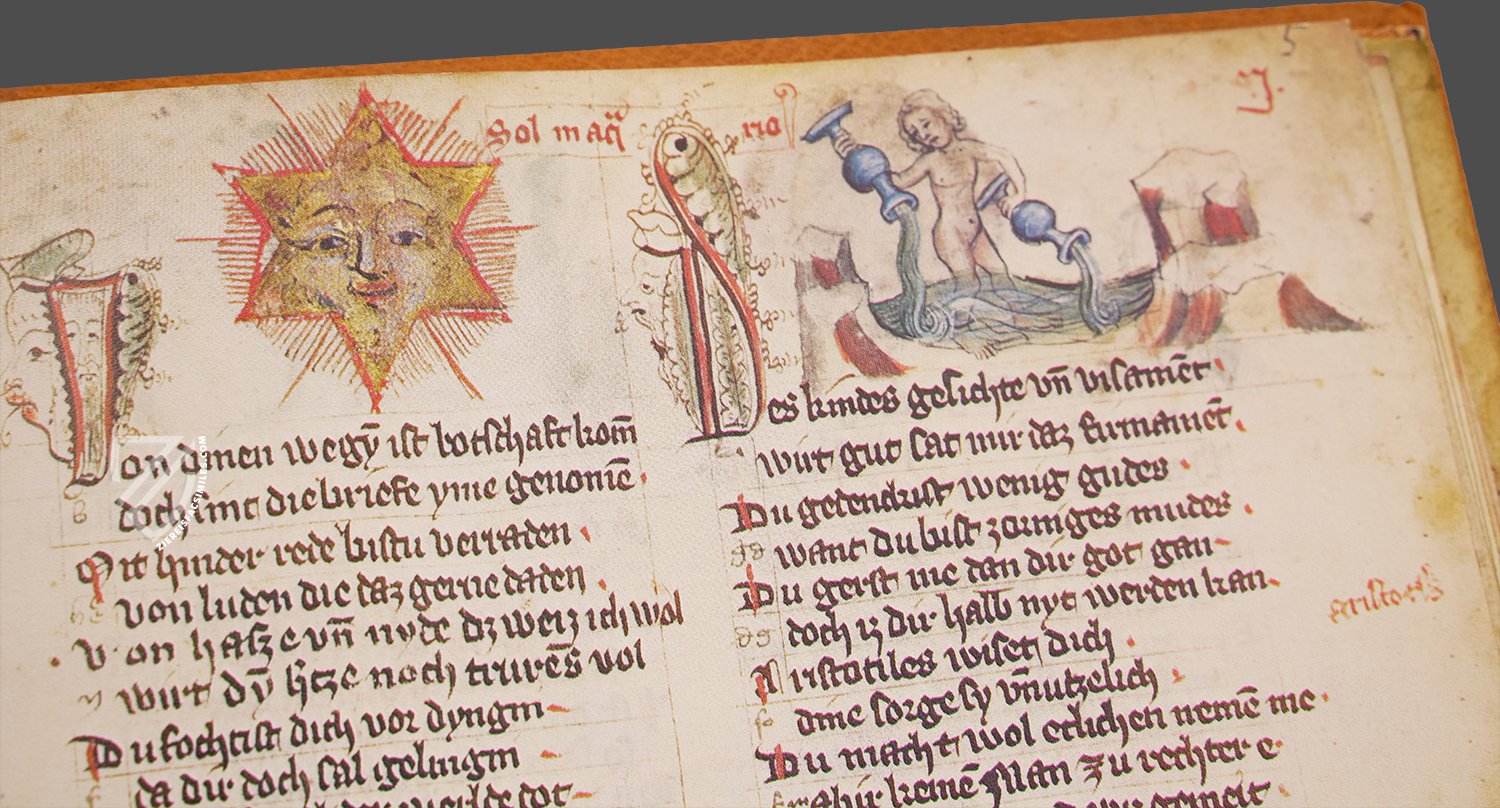 5
Sol in aq̄rio
IJ.
Von dinen wegȳ ist botschaft kom̄
doch sint die briefe yme genom̄e
Mit hinder rede bistu verraden
von luden die daz gerne daden
Von hasze vn̄ nyde dz weiz ich wol
wirt dȳ h̄tze noch trurēs vol
Du fochtist dich vor dyngin
da dir doch sal gelingin
Des kindes gesichte vn̄ visamēt
wirt gut sat mir daz firmamēt
Du gedenckist wenig gudes
want du bist zorniges mudes
Du gerst me dan dir got gan
doch iz dir halb nyt werden kan
Aristotiles wiset dich
dine sorge sy vn̄utzelich
Du macht wol etlichen nemē me
keinē Man zu rechter e
aristotiles
ZIEREIS FACSIMILES
WWW